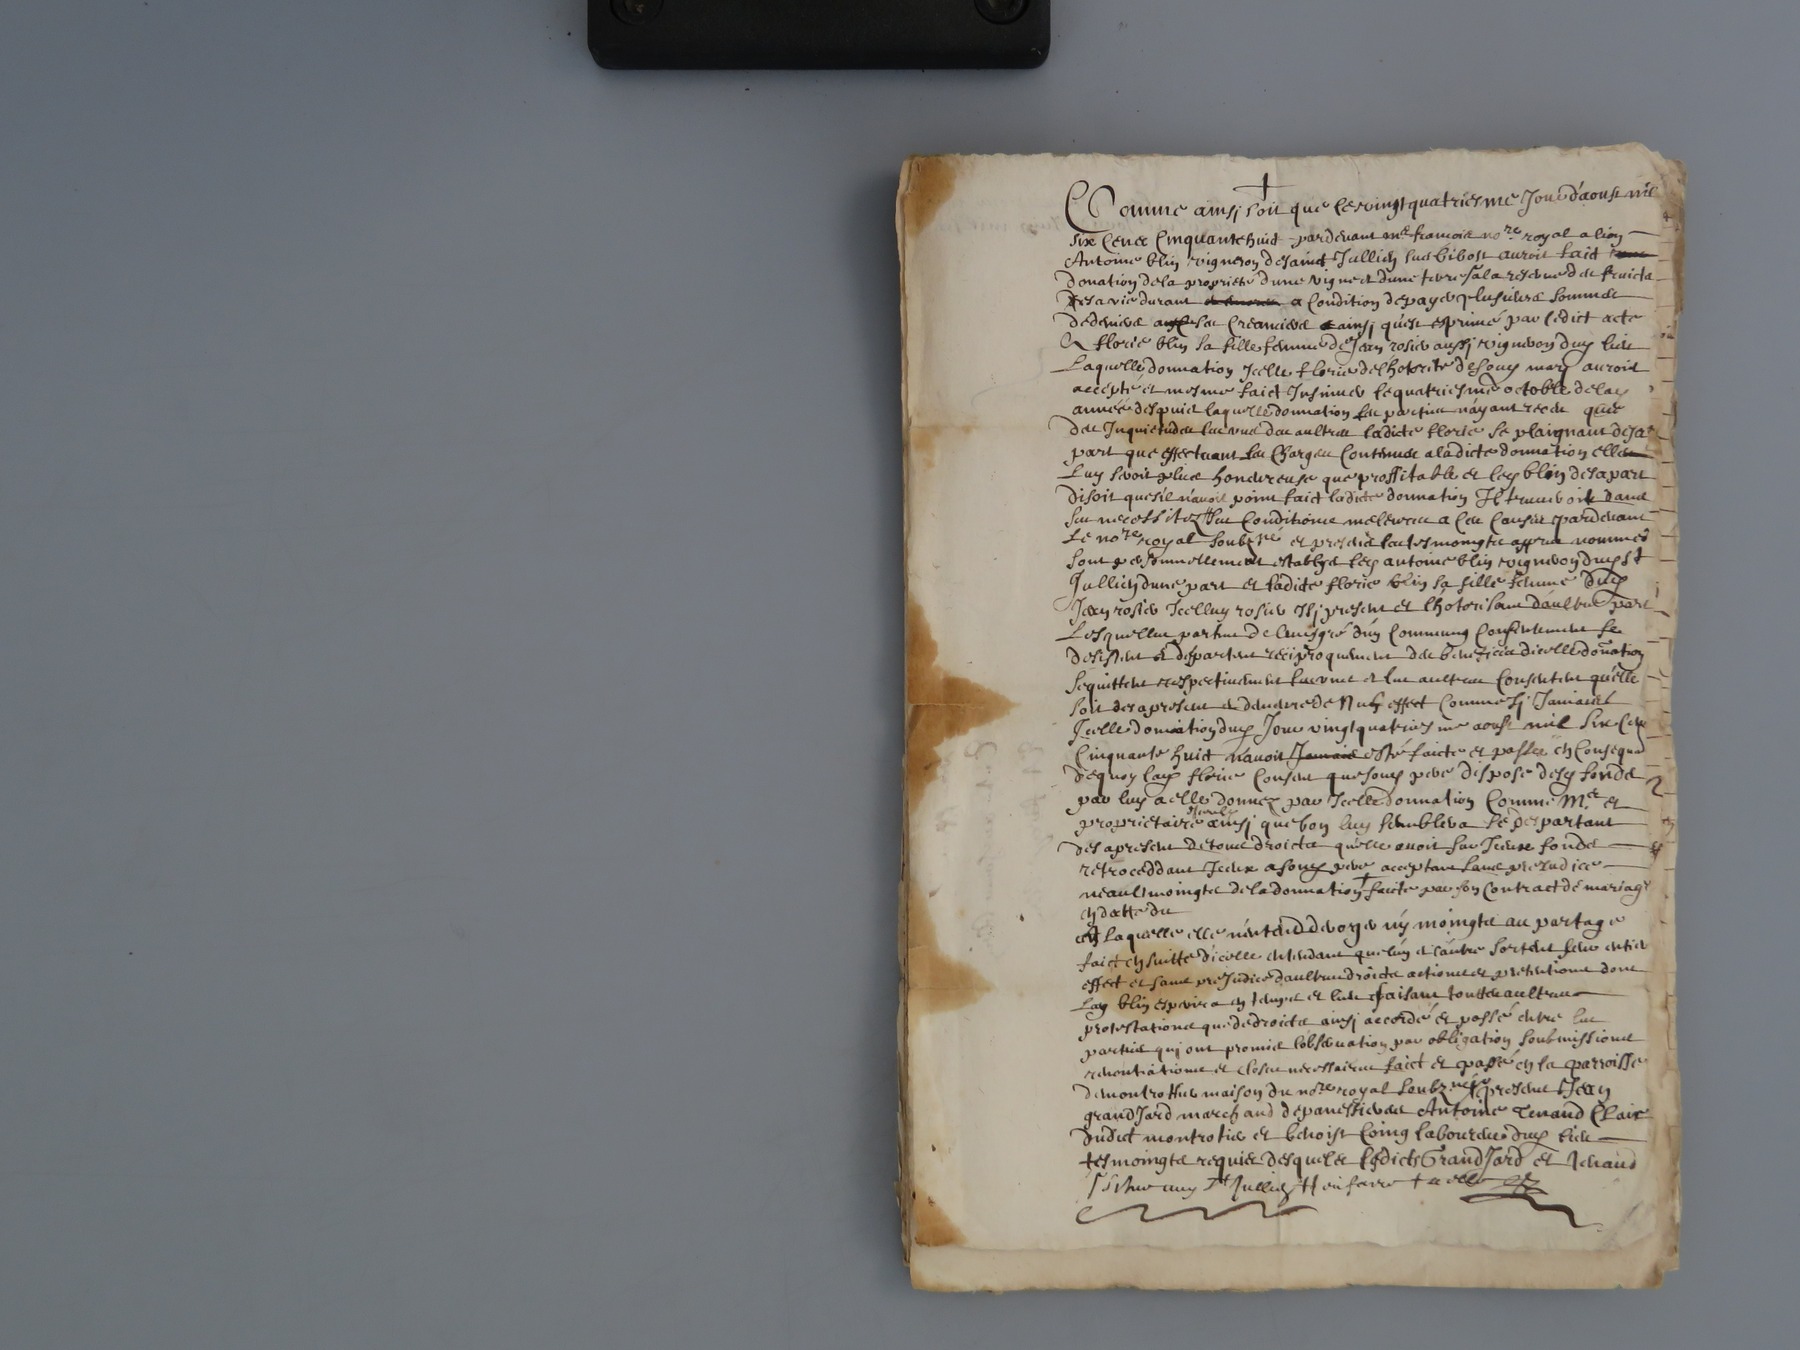 Comme ainsi soit que le vingtquatriesme Jour d'aoust mil
six Cens Cinquante huict pardevant me francois nore royal a lion
Antoine blin vigneron de sainct Jullien sus bibost auroit faict
donation de la proprieté d'une vigne et d'une terre a la reserve des fruicts
sa vie durant a Condition de payer plusieurs sommes
de deniers a ses Creanciers ainsi qu'est exprimé par ledict acte
A florie blin sa fille femme de Jean rosier aussi vigneron dud lieu
Laquelle donnation Icelle florie de l'hotorité de sond mary auroit
accepté et mesme faict Insinuer le quatriesme octobre de lad
année despuis laquelle donnation les parties n'ayant receu que
des Inquietudes les unes des aultres ladicte florie se plaignant de sa
part que effectuant les Charges Contenues a ladicte donnation elle
Luy seroit plus honnereuse que proffitable et led blin de sa part
disoit que s'il n'avoit point faict ladicte donnation Il trouveroit dans
ses necessitez ses Conditions melieures a Ces Causes pardevant
Le nore royal soubzné et presents les tesmoingts appres nommes
sont personnellement establys led antoine blin vigneron dud st
Jullien d'une part et ladicte florie blin sa fille femme dud
Jean rosier Icelluy rosier Icy present et l'hotorisant d'aultre part
Lesquelles parties de leur gré d'un Commung Consentement se
desistent et despartent reciproquement des benefices d'icelle donnation
se quittent respectivement les unes et les aultres Consentent qu'elle
soit des apresent et demeure de Nul effect Comme si Jamais
Icelle donnation dud Jour vingtquatriesme aoust mil six Cens
Cinquante huict n'avoit Jamais esté faicte et passée en Consequa
de quoy lad florie Consent que sond pere dispose desd fonds
par luy a elle donnez par Icelle donnation Comme Mr et
proprietaire ainsi que bon luy semblera se despartant
des apresent de tous droicts qu'elle avoit sur Iceux fonds
retroceddant Iceux a sond pere acceptant sans prejudice
neaulmoingts de la donnation faicte par son Contract de mariage
en datte du
a Laquelle elle n'entend deroger ny moingts au partage
faict en suitte d'icelle entendant que l'un et l'autre sortent leur entier
effect et sans prejudice d'aultres droicts actions et pretentions dont
Lad blin espirera en temps et lieu faisant touttes aultres
protestations que de droicts ainsi accordé et passé entre les
parties qui ont promis l'observation par obligation soubmissions
renontiations et closes necessaires faict et passé en la parroisse
de montrottier maison du nore royal soubzné presents Jean
grandJard marchand de panessieres Antoine Tenaud Clair
dudict montrotier et benoist Coing laboureur dud lieu
tesmoingts requis desquels lesdicts GrandJard et Tenaud